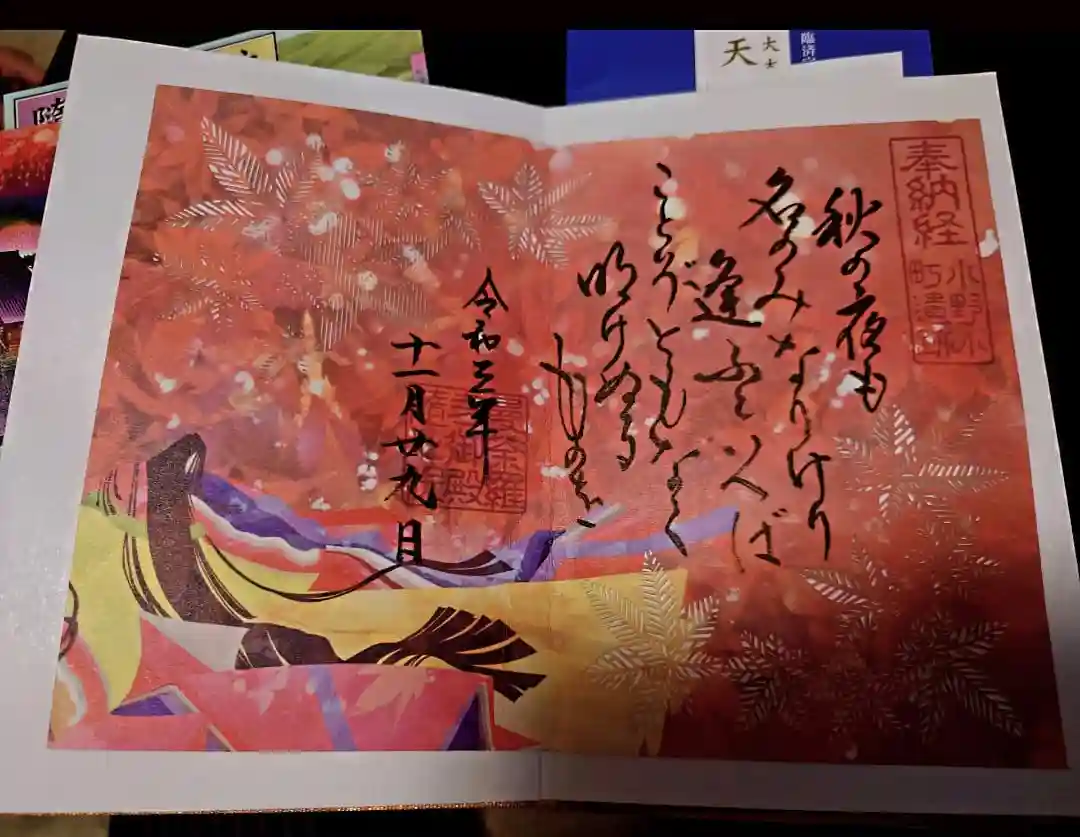 奉納経
小野小
町遺跡
秋の夜も
名のみなりけり
逢ふといへば
ことぞともなく
明けぬる
ものを
令和三年
十一月廿九日
曼荼羅
御殿
大士
天
臨済